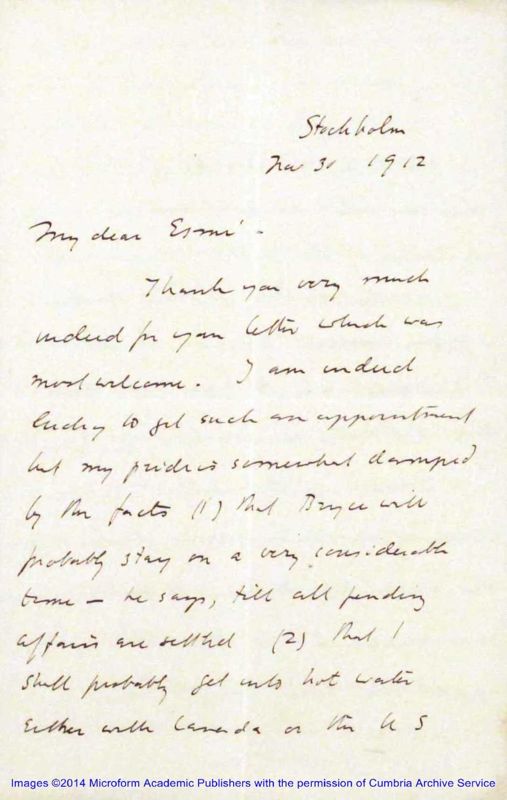 Stockholm
Nov 30 1912
My dear Esmé -
Thank you very much
indeed for your letter which was
most welcome. I am indeed
lucky to get such an appointment
but my pride is somewhat damped
by the facts (1) that Bryce will
probably stay on a very considerable
time — he says, till all pending
affairs are settled (2) that I
shall probably get into hot water
either with Canada or the U S
Images ©2014 Microform Academic Publishers with the permission of Cumbria Archive Service